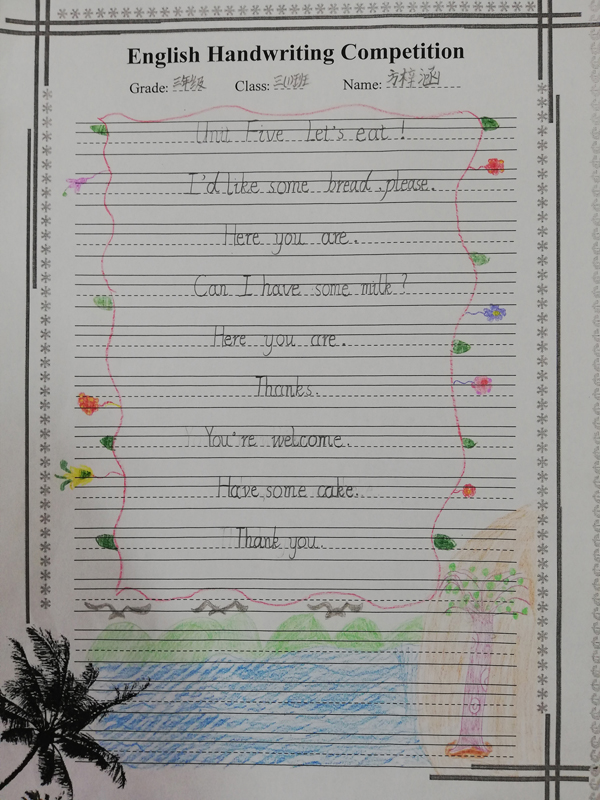 English Handwriting Competition
Grade: 三年级 Class: 三(1)班 Name: 方梓涵
Unit Five Let's eat !
I'd like some bread ,please.
Here you are.
Can I have some milk ?
Here you are.
Thanks.
You're welcome.
Have some cake.
Thank you.